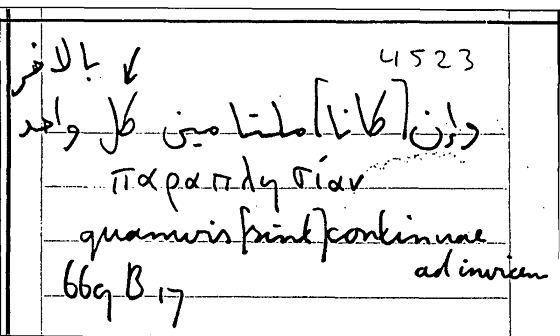 4523
بالاخر
وإن [كانا] ملتئامين كل واحد
παραπλησίαν
quamvis [sint] continuae
ad invicem
669 B 17